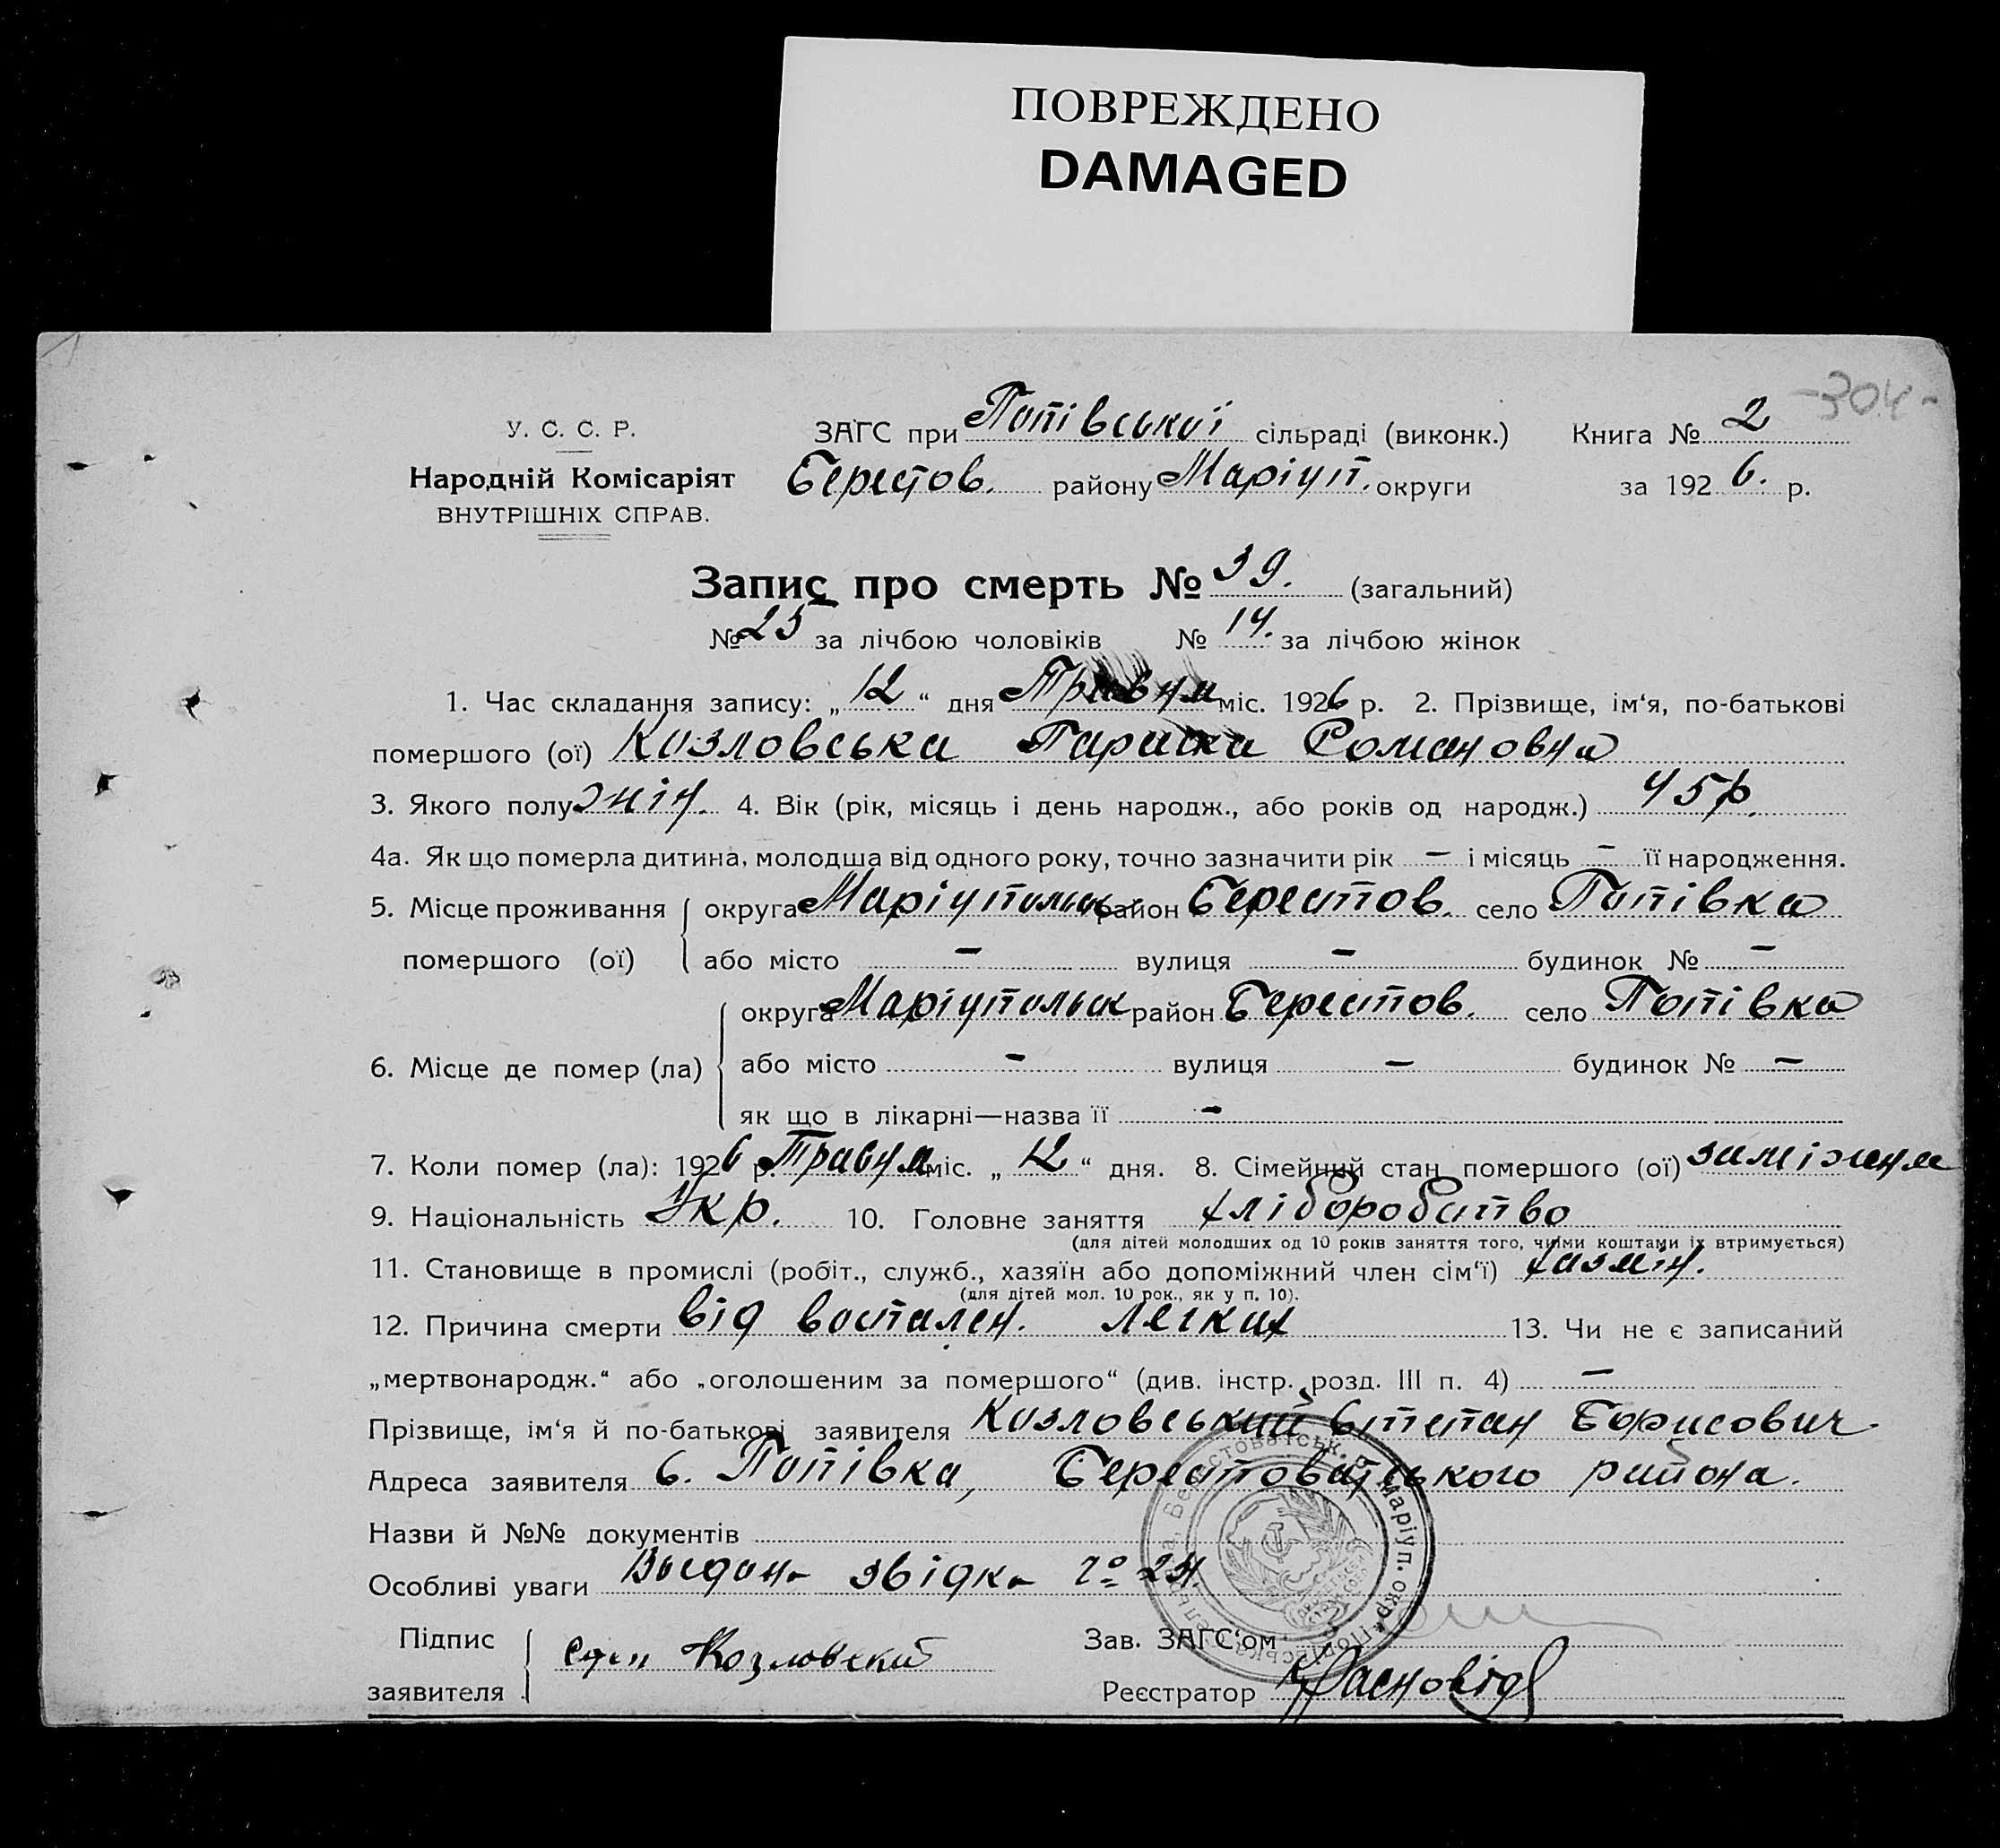 ПОВРЕЖДЕНО
DAMAGED
-304-
У. С. С. Р.
Народній Комісаріят
ВНУТРІШНІХ СПРАВ.
ЗАГС при Попівської сільраді (виконк.) Книга № 2
Берестов. району Маріуп. округи за 1926. р.
Запис про смерть № 39. (загальний)
№ 25 за лічбою чоловіків № 14. за лічбою жінок
1. Час складання запису: „12“ дня Травня міс. 1926 р. 2. Прізвище, ім‘я, по-батькові
помершого (ої) Козловська Романовна
3. Якого полу жін. 4. Вік (рік, місяць і день народж., або років од народж.) 45р.
4а. Як що померла дитина, молодша від одного року, точно зазначити рік – і місяць – її народження.
5. Місце проживання округа Маріупольськ район Берестов. село Попівка
помершого (ої) або місто – вулиця – будинок № –
округа Маріупольск район Берестов. село Попівка
6. Місце де помер (ла) або місто – вулиця – будинок № –
як що в лікарні—назва її –
7. Коли помер (ла): 1926 р. Травня міс. „12“ дня. 8. Сімейний стан помершого (ої) заміжня
9. Національність Укр. 10. Головне заняття хліборобство
(для дітей молодших од 10 років заняття того, чиїми коштами їх втримується)
11. Становище в промислі (робіт., служб., хазяїн або допоміжний член сім‘ї)
(для дітей мол. 10 рок., як у п. 10).
12. Причина смерти від воспален. легких 13. Чи не є записаний
„мертвонародж.“ або „оголошеним за помершого“ (див. інстр. розд. III п. 4) –
Прізвище, ім‘я й по-батькові заявителя Козловський Степан Борисович
Адреса заявителя С. Попівка, Берестоватського района.
Назви й №№ документів
Особливі уваги Видана звідка № 24
Підпис заявителя Степ Козловский
Зав. ЗАГС‘ом
Реєстратор
Маріуп. окр.